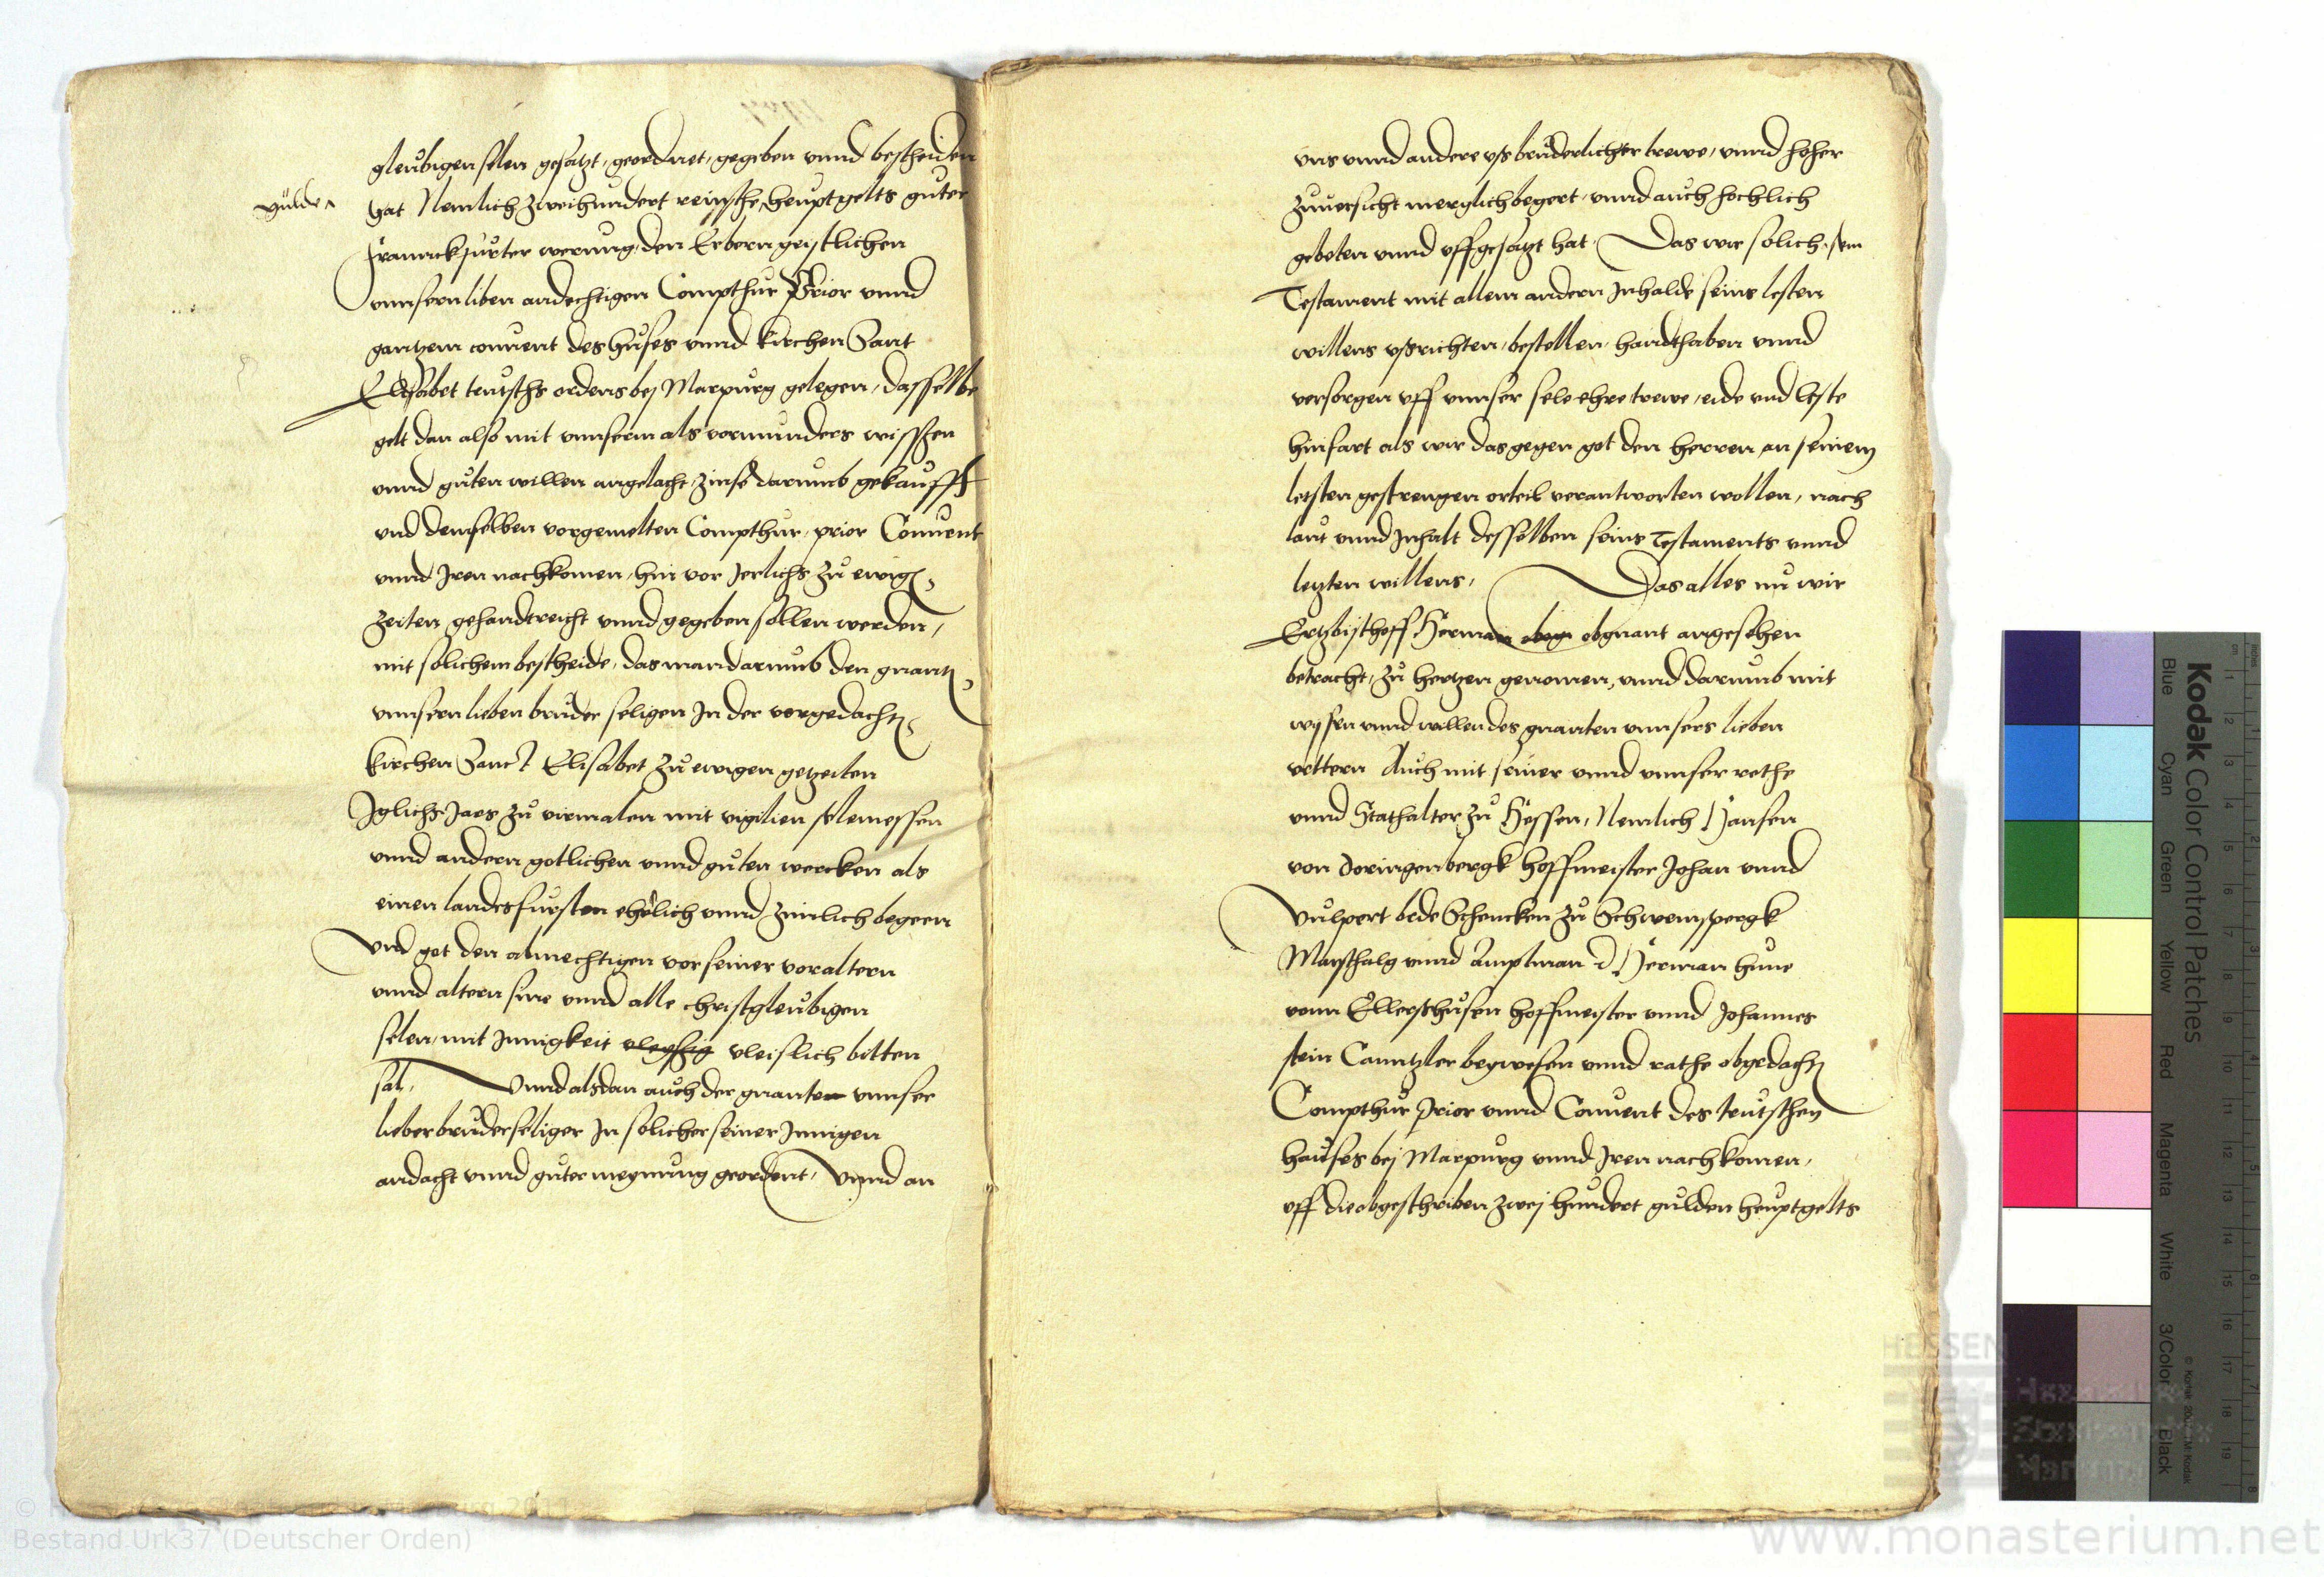 gleubigen selen gesatzt, geordnet, gegeben vnnd bescheiden
gulden
hat Nemlich zweihundert reinsche heuptgelts guter
franckfurter werung, den Erbern geistlichen
vnnsern liben andechtigen Compthur Prior vnnd
gantzem conuent des huses vnnd kirchen Sant
Elisabet teutschs ordens bej Marpurg gelegen, dasselbe
gelt dan also mit vnnserm als vormunders wisszen
vnnd guten willen angelacht zinse darumb gekaufft
vnd denselben vorgemelten Compthur, prior Conuent
vnnd Iren nachkomen, hin vor Jerlichs zu ewigen
zeiten gehandtreicht vnnd gegeben sollen werden,
mit solichem bescheide, das man darumb den gnanten
vnnsern lieben bruder seligen In der vorgedachten
kirchen Sanct Elisabet zu ewigen getzeiten
Iglichs Jars zu viermalen mit vigilien selemessen
vnnd andern gotlichen vnnd guten wercken als
einen landesfursten ehrlich vnnd zimlich begeen
Vnd got den almechtigen vor seiner voraltern
vnnd altern sine vnnd alle christgleubigen
selen, mit Innigkeit vleyssig vleislich bitten
sal, Vnnd alsdan auch der gnanten vnnser
lieber bruder seliger In solicher seiner Innigen
andacht vnnd guter meynung geordent, Vnnd an
vns vnnd andere vß bruderlicher trewe, vnnd hoher
zuuersicht merglich begert, vnnd auch hochlich
gebeten vnnd vffgesatzt hat, Das wir solich sein
Testament mit allem andern Inhalde seins lesten
willens vßrichten, bestellen, handthaben vnnd
versorgen vff vnnser sele ehre trewe, eide vnd leste
hinfart als wir das gegen got den herren an seinem
letsten gestrengen orteil verantworten wollen, nach
laut vnnd Inhalt desselben seins Testaments vnnd
letzten willens, Das alles nu wir
Ertzbischoff Herman obgn obgnant angesehen
betracht, zu hertzen genomen, vnnd darumb mit
wyssen vnnd willen des gnanten vnnsers lieben
vettern Auch mit seiner vnnd vnnser rethe
vnnd Stathalter zu Hessen, Nemlich Hansen
von doringenbergk hoffmeister Johan vnnd
Vulpert bede Schencken zu Schweinspergk
Marschalg vnnd Amptman Herman hune
vonn Ellershusen hoffmeister vnnd Johannes
stein Canntzler beywesen vnnd rathe obgedachten
Compthur Prior vnnd Conuent des teutschen
hauses bej Marpurg vnnd Iren nachkomen,
vff die obgeschriben zwej hundert gulden heuptgelts
Kodak Color Control Patches
Blue Cyan Green Yellow Red Magenta White 3/Color Black
HESSEN
Bestand Urk37 (Deutscher Orden)
www.monasterium.net